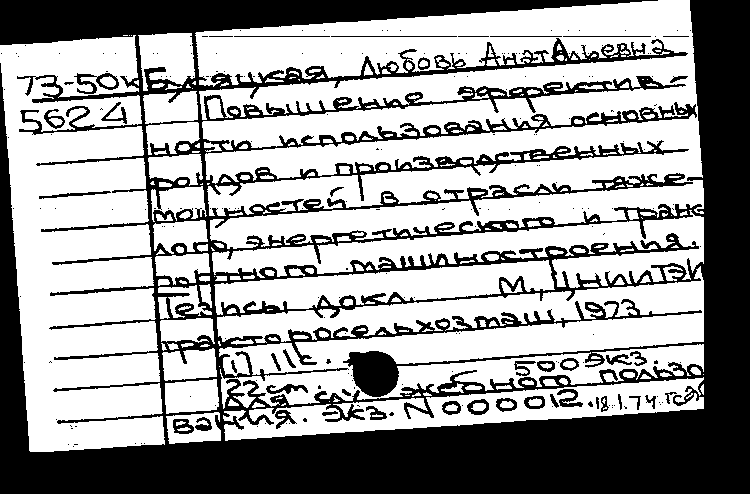 73-50к Бусяцкая, Любовь Анатольевна
5624 Повышение эффектив-
ности использования основных
фондов и производственных
мощностей в отрасли тяже-
лого, энергетического и транс
портного машиностроения.
Тезисы докл. М., ЦНИИТЭИ
трактросельхозмаш, 1973.
[1], 11 с.
22 см. 500 экз.
Для служебного пользо
вания. Экз. N 000012. 18.1.74